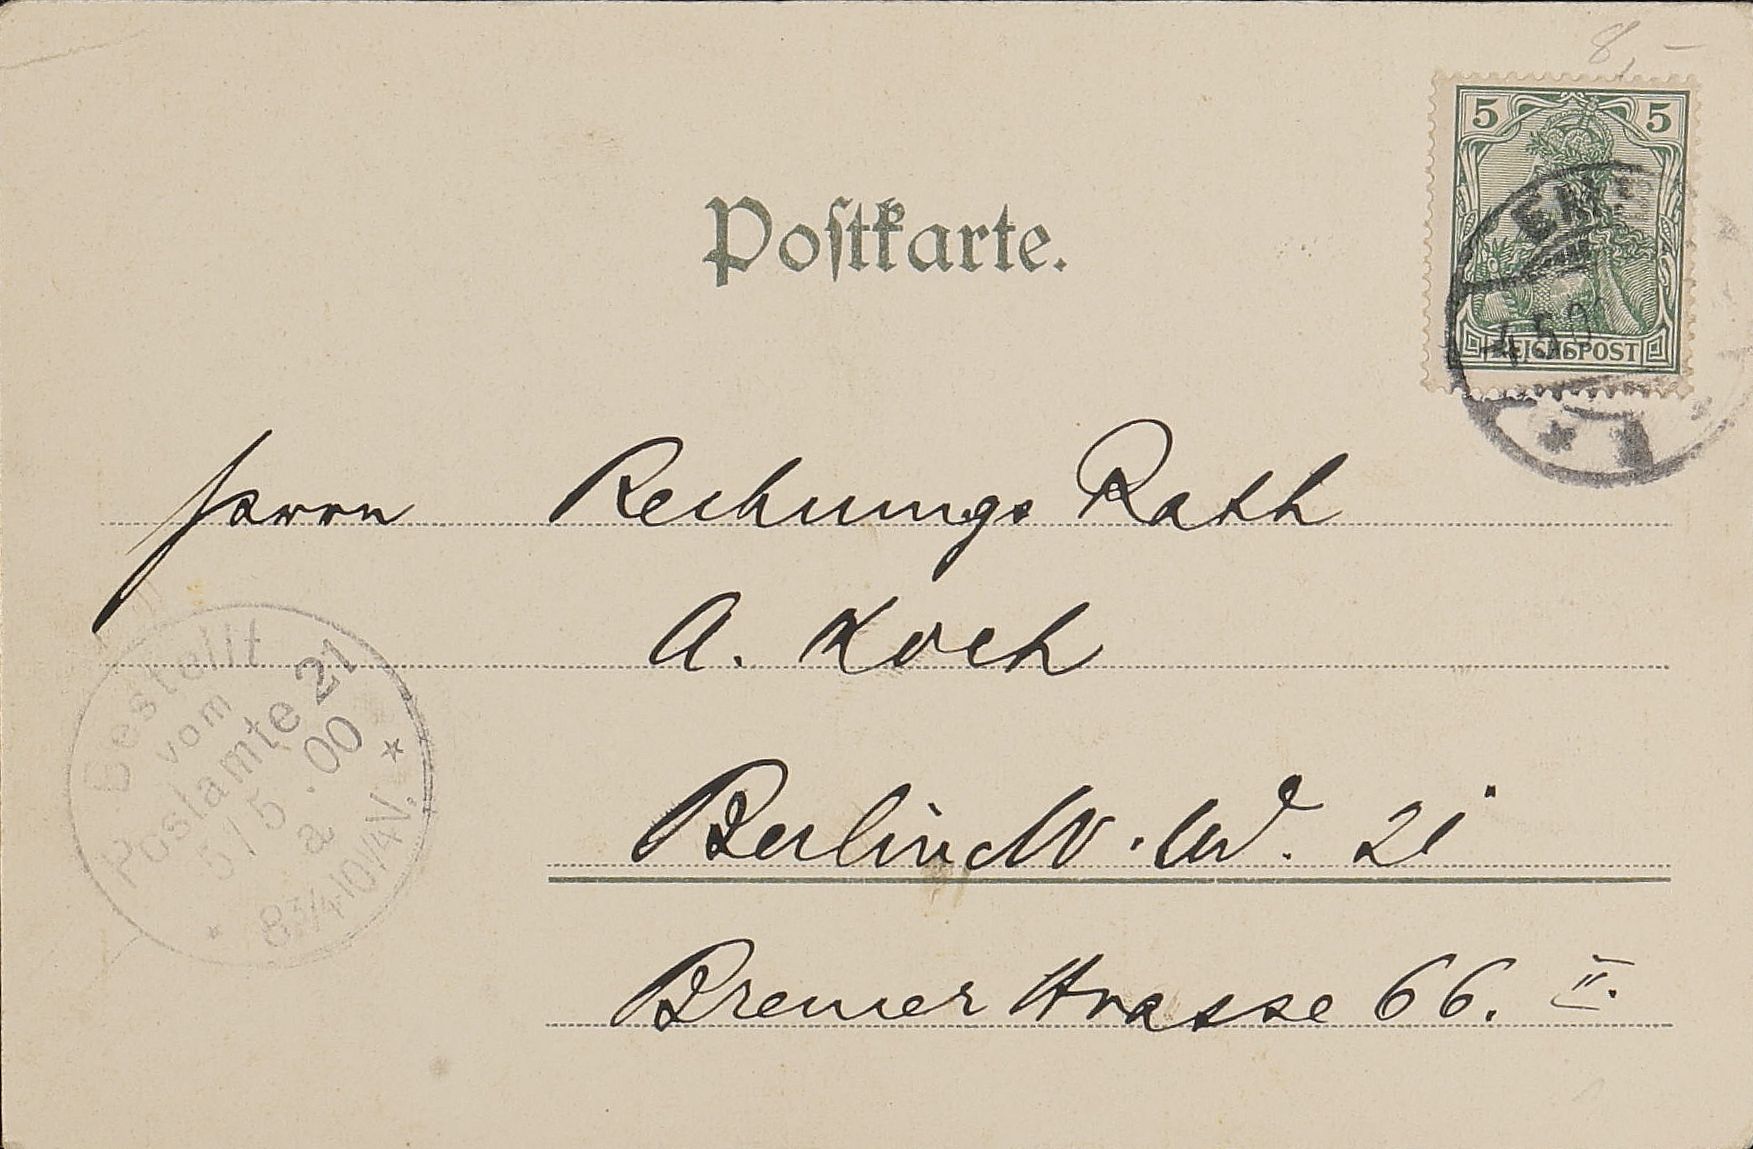 8,–
5 5
EMS
4.5.0
REICHSPOST
Postkarte.
Herrn Rechnungs Rath
A. Koch
Berlin N. W. 21
Bremer Strasse 66. II.
Bestellt
vom
Postamte 21
5/5.00
a
8¾-10¼V.